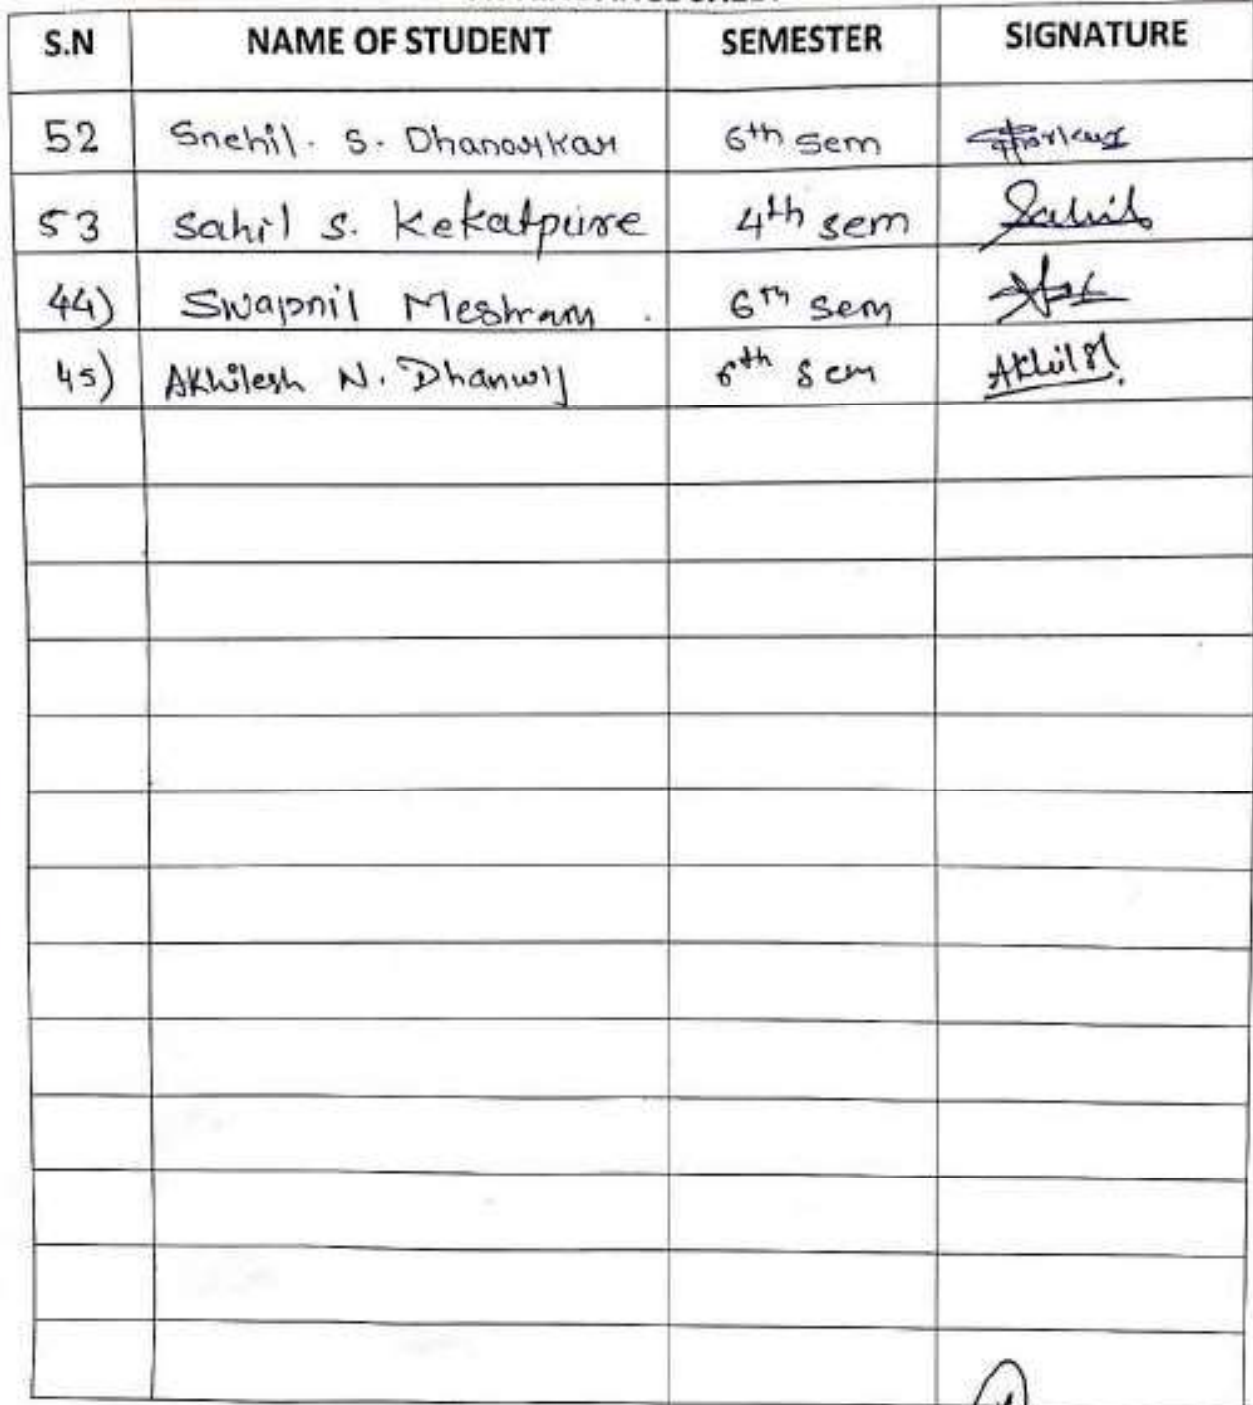 S.N NAME OF STUDENT SEMESTER SIGNATURE
52 Snehil. S. Dhanorkar 6th sem
53 Sahil S. Kekatpure 4th sem Sahil
44) Swapnil Meshram. 6th sem
45) Akhilesh N. Dhanwij 6th sem